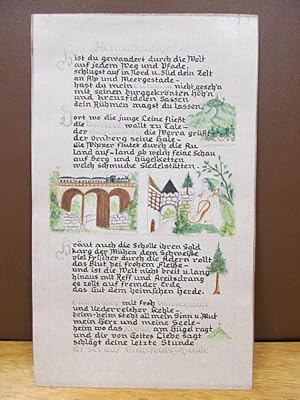 Heimatklänge
Bist du gewandert durch die Welt
auf jedem Weg und Pfade,
schlugst auf in Nord u. Süd dein Zelt
an Alp und Meergestade-
hast du mein nicht geseh'n
mit seinen burggekrönten Höh'n
und kreuzfidelen Sassen
dein Rühmen magst du lassen.
Dort wo die junge Leine fließt
die wallt zu Tale-
der die Werra grüßt
der Omberg seine
die Wipper flutet durch die Au
land auf-land ab welch feine Schau
auf Berg und Hügelketten
welch schmucke Siedelstätten.
Bräut auch die Scholle ihren Sold
karg der Mühen dem Schweiße
viel frischer durch die Adern rollt
das Blut bei frohem Fleiße-
und ist die Welt nicht breit u. lang
hinaus mit Reff und Kreitsdrang
es zollt auf fremder Erde
das Gut dem heim'schen Herde.
mit froh
und liederreicher Kehle-
heim-heim steht all mein Sinn u. Mut
mein Herz und meine Seele-
heim wo das am Hügel ragt
und dir von Gottes Liebe sagt
schlägt deine letzte Stunde